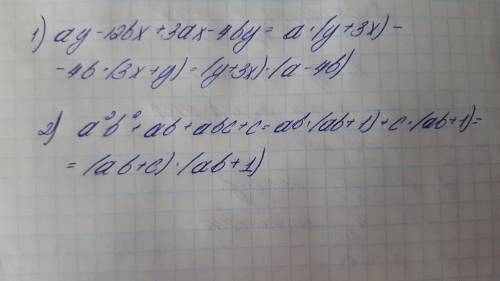 1) ay - 12bx + 3ax - 4by = a · (y + 3x) -
- 4b · (3x + y) = (y + 3x) · (a - 4b)
2) a²b² + ab + abc + c = ab · (ab + 1) + c · (ab + 1) =
= (ab + c) · (ab + 1)